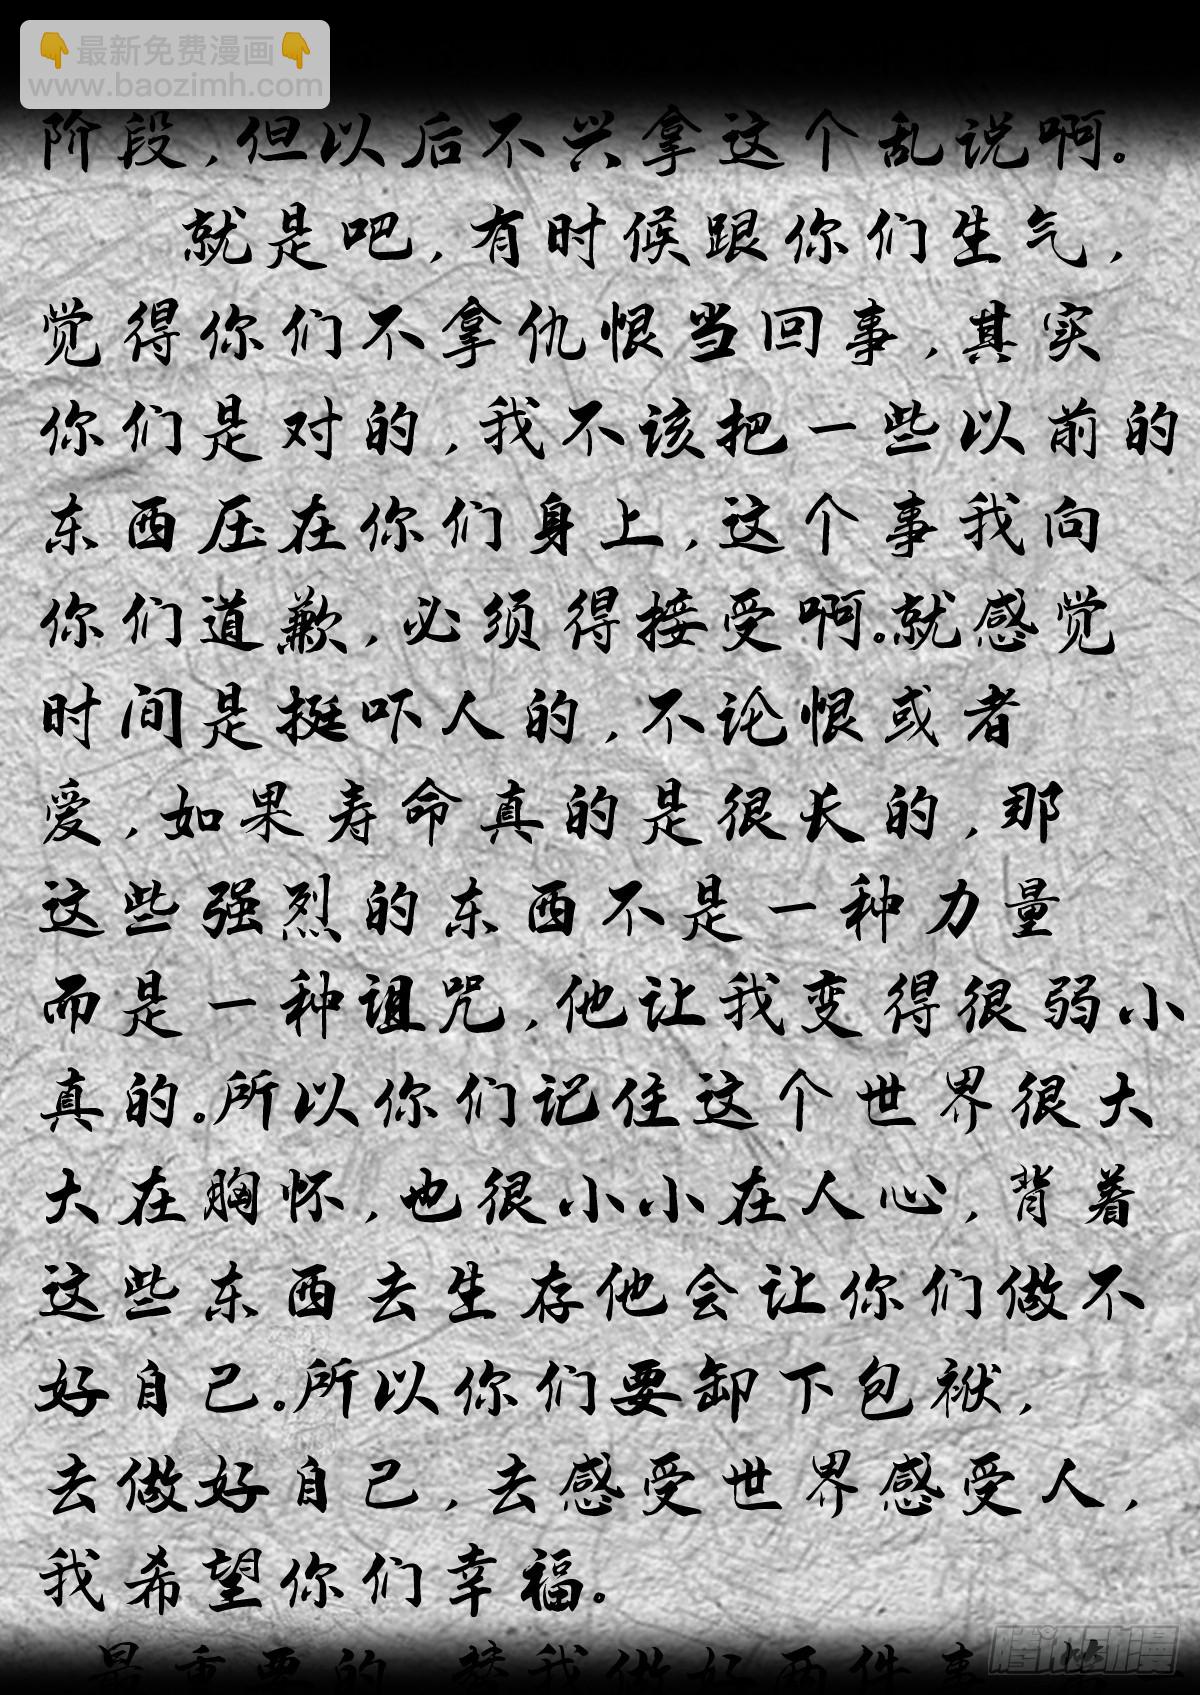 👇最新免费漫画👇
www.baozimh.com
阶段,但以后不兴拿这个乱说啊。
就是吧,有时候跟你们生气,
觉得你们不拿仇恨当回事,其实
你们是对的,我不该把一些以前的
东西压在你们身上,这个事我向
你们道歉,必须得接受啊。就感觉
时间是挺吓人的,不论恨或者
爱,如果寿命真的是很长的,那
这些强烈的东西不是一种力量
而是一种诅咒,他让我变得很弱小
真的。所以你们记住这个世界很大
大在胸怀,也很小小在人心,背着
这些东西去生存他会让你们做不
好自己。所以你们要卸下包袱,
去做好自己,去感受世界感受人,
我希望你们幸福。
最重要的 替我做好两件事 第
腾讯动漫